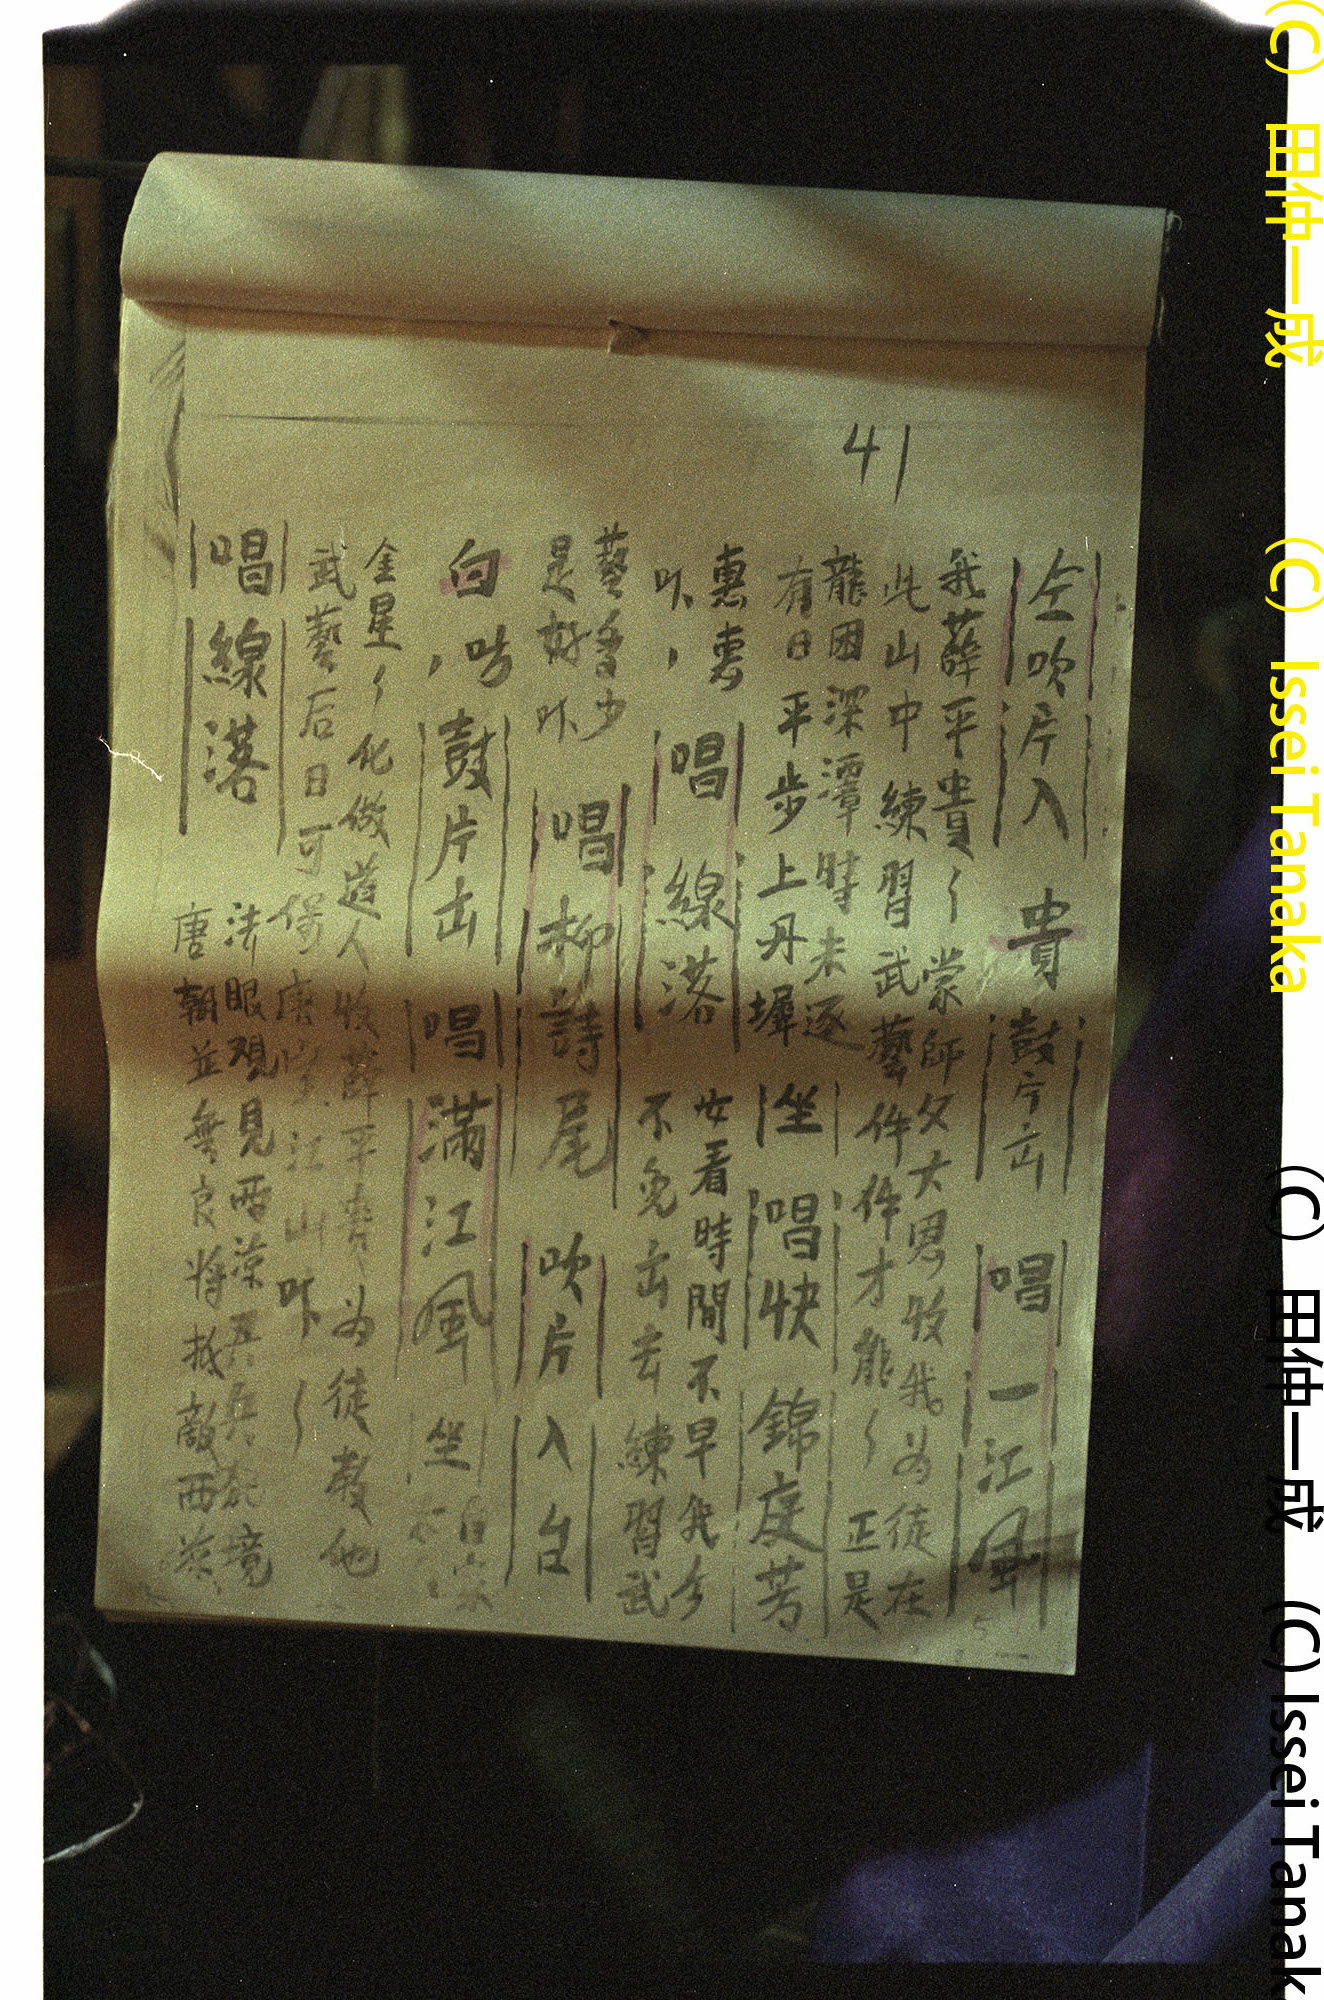 41
仝吹片入 貴 鼓亠出 唱一江風
我薛平貴〻蒙師父大恩收我為徒在
此山中練習武藝件件才能〻正是
龍困深潭時未逐
有日平步上丹墀 坐 唱快 錦庭芳
惠惠 唱線落 女看時間不早我今
咔, 不免出去練習武
藝
是好咔 唱柳詩尾 吹片入台
白, 咕 鼓片出 唱滿江風 坐 白
金星〻化做道人收薛平貴為徒教他
武藝后日可保唐室江山咔〻
唱線落 法眼观見西涼兵境
唐朝並無良将抵敵西
(C) 田仲一成 (C) Issei Tanaka
(C) 田仲一成 (C) Issei Tanak